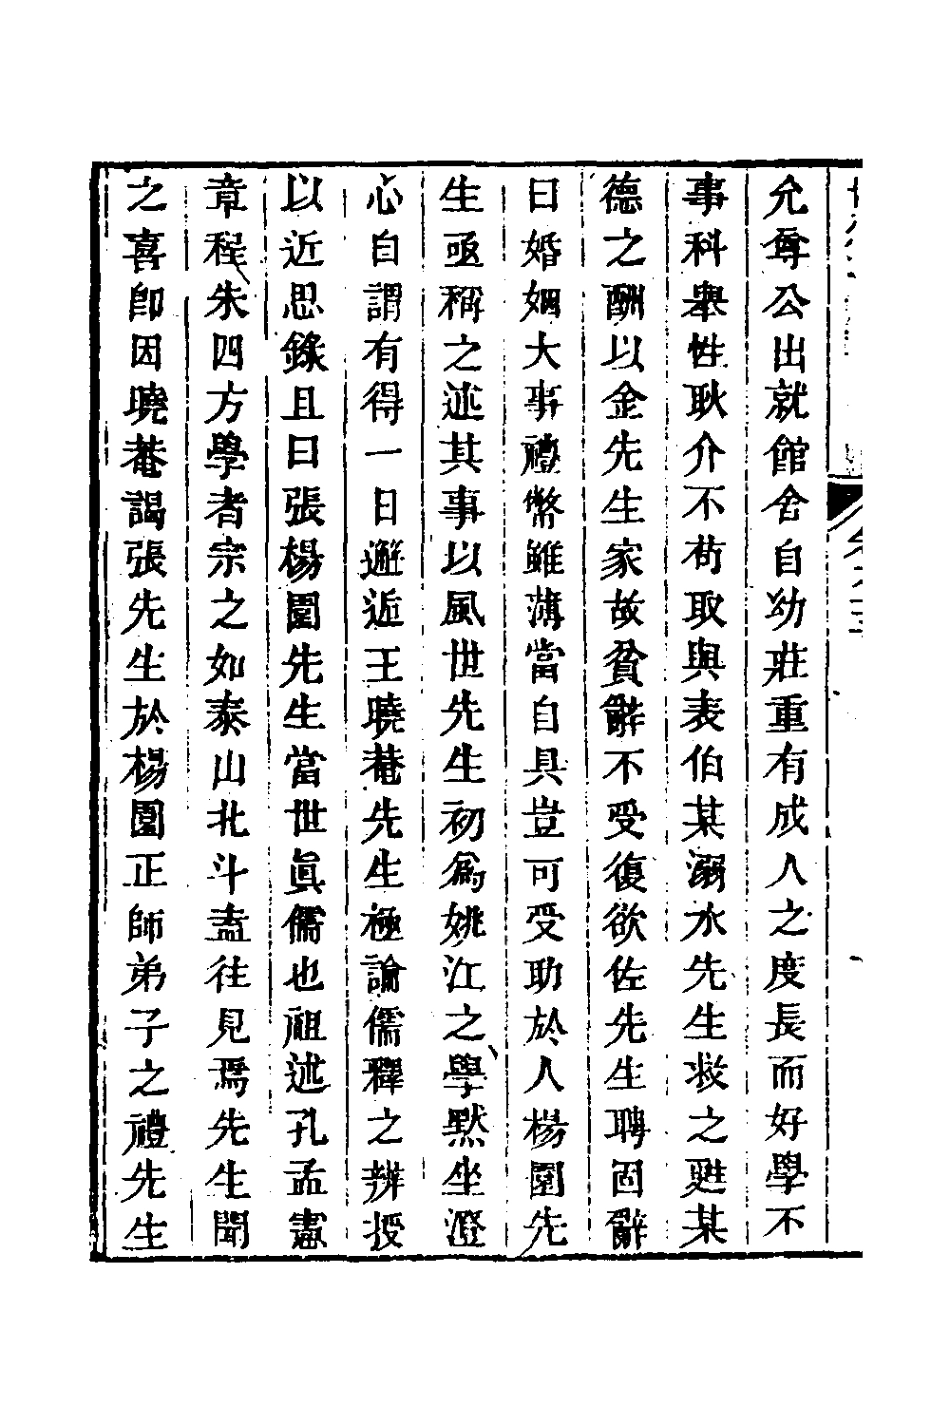 允尊公出就館舍自幼莊重有成人之度長而好學不
事科舉性耿介不苟取與表伯某溺水先生救之甦某
德之酬以金先生家故貧辭不受復欲佐先生聘固辭
曰婚姻大事禮幣雖薄當自具豈可受助於人楊園先
生亟稱之述其事以風世先生初爲姚江之學默坐澄
心自謂有得一日邂逅王曉菴先生極論儒釋之辨授
以近思錄且曰張楊園先生當世眞儒也祖述孔孟憲
章程朱四方學者宗之如泰山北斗盍往見焉先生聞
之喜卽因曉菴謁張先生於楊園正師弟子之禮先生